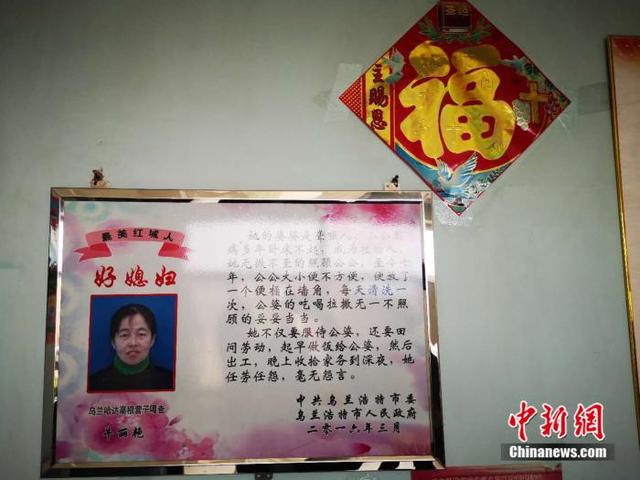 圣经
福
主赐恩
最美红城人
好媳妇
她的婆婆是聋哑人，公公
病多年卧床不起，成为植物人，
她无微不至的照顾公公，至今七
年，公公大小便不方便，便放了
一个便桶在墙角，每天清洗一
次，公婆的吃喝拉撒无一不照
顾的妥妥当当。
她不仅要服侍公婆，还要田
间劳动，起早做饭给公婆，然后
出工，晚上收拾家务到深夜，她
任劳任怨，毫无怨言。
中共乌兰浩特市委
乌兰浩特市人民政府
二零一六年三月
乌兰哈达高根营子嘎查
牛丽艳
中新网
Chinanews.com
CHINANEWS.COM